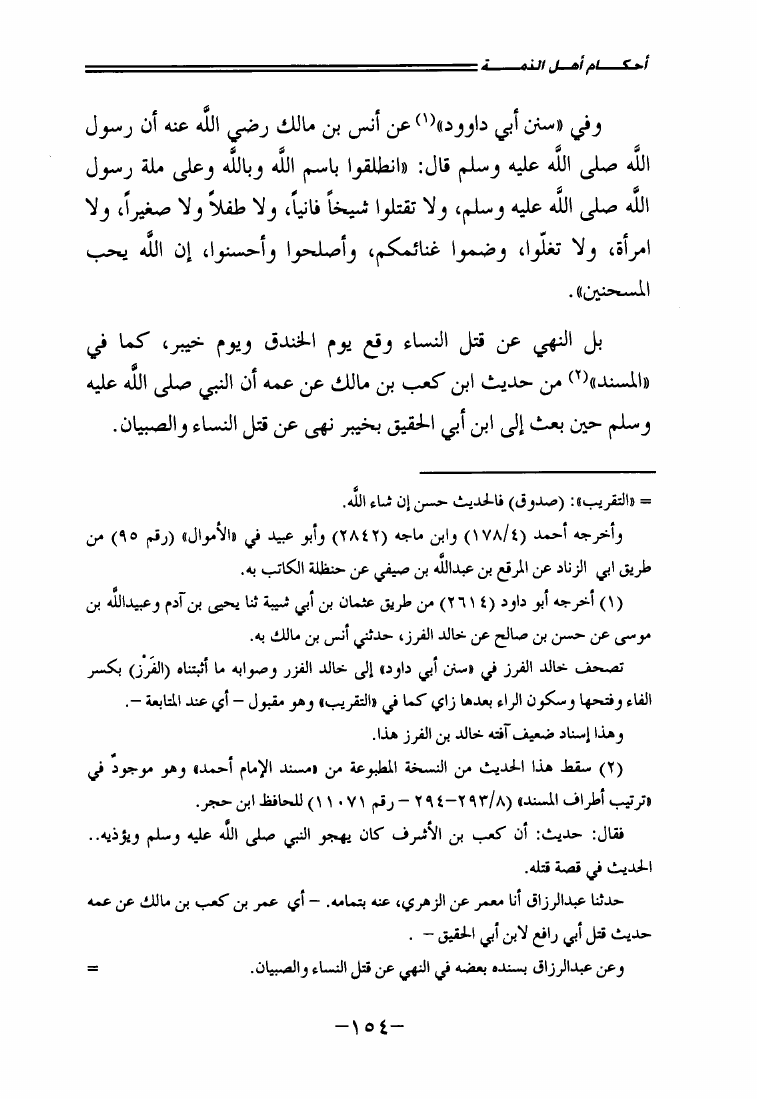 أحكـــام أهـل الذمـــــة
وفي «سنن أبي داوود»(١) عن أنس بن مالك رضي اللَّه عنه أن رسول
اللَّه صلى اللَّه عليه وسلم قال: «انطلقوا باسم اللَّه وباللَّه وعلى ملة رسول
اللَّه صلى اللَّه عليه وسلم، ولا تقتلوا شيخاً فانياً، ولا طفلاً ولا صغيراً، ولا
امرأة، ولا تغلّوا، وضموا غنائمكم، وأصلحوا وأحسنوا، إن اللَّه يحب
المسحنين».
بل النهي عن قتل النساء وقع يوم الخندق ويوم خيبر، كما في
«المسند»(٢) من حديث ابن كعب بن مالك عن عمه أن النبي صلى اللَّه عليه
وسلم حين بعث إلى ابن أبي الحقيق بخيبر نهى عن قتل النساء والصبيان.
= «التقريب»: (صدوق) فالحديث حسن إن شاء اللَّه.
وأخرجه أحمد (١٧٨/٤) وابن ماجه (٢٨٤٢) وأبو عبيد في «الأموال» (رقم ٩٥) من
طريق ابي الزناد عن المرقع بن عبداللَّه بن صيفي عن حنظلة الكاتب به.
(١) أخرجه أبو داود (٢٦١٤) من طريق عثمان بن أبي شيبة ثنا يحيى بن آدم وعبيداللَّه بن
موسى عن حسن بن صالح عن خالد الفرز، حدثني أنس بن مالك به.
تصحف خالد الفرز في «سنن أبي داود» إلى خالد الفزر وصوابه ما أثبتناه (الفَرْز) بكسر
الفاء وفتحها وسكون الراء بعدها زاي كما في «التقريب» وهو مقبول – أي عند المتابعة –.
وهذا إسناد ضعيف آفته خالد بن الفرز هذا.
(٢) سقط هذا الحديث من النسخة المطبوعة من «مسند الإمام أحمد» وهو موجودٌ في
«ترتيب أطراف المسند» (٢٩٣/٨–٢٩٤ – رقم ١١٠٧١) للحافظ ابن حجر.
فقال: حديث: أن كعب بن الأشرف كان يهجو النبي صلى اللَّه عليه وسلم ويؤذيه..
الحديث في قصة قتله.
حدثنا عبدالرزاق أنا معمر عن الزهري، عنه بتمامه. – أي عمر بن كعب بن مالك عن عمه
حديث قتل أبي رافع لابن أبي الحقيق – .
وعن عبدالرزاق بسنده بعضه في النهي عن قتل النساء والصبيان. =
–١٥٤–